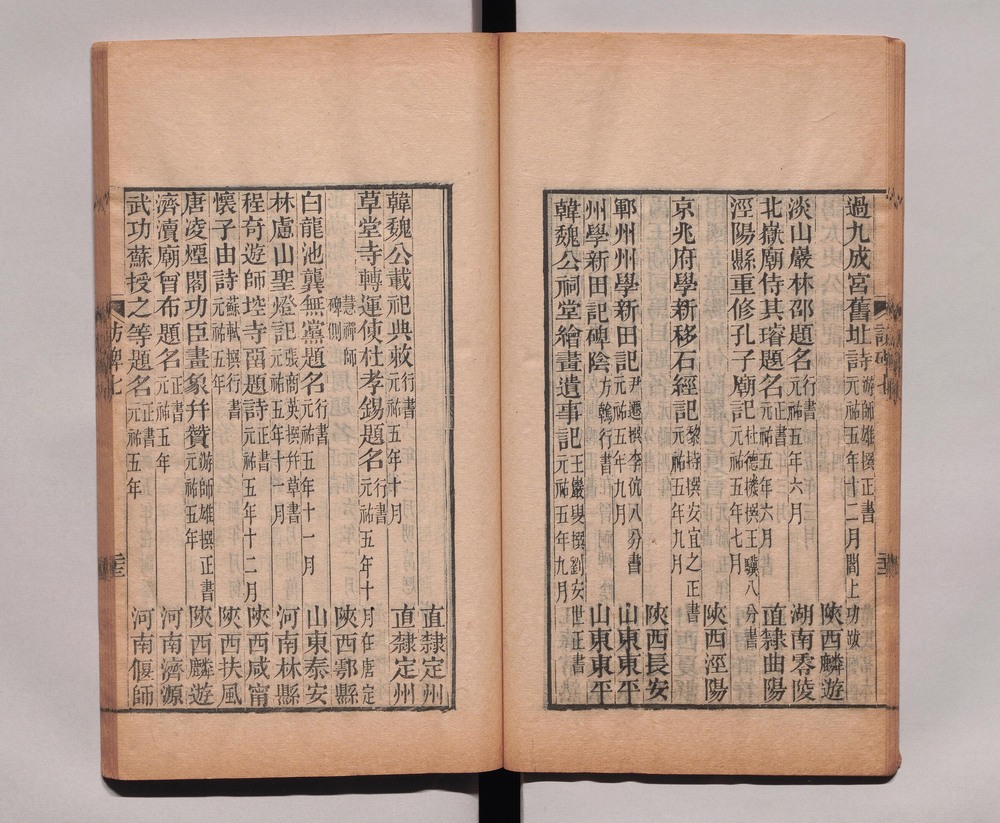 過九成宮舊址詩游師雄撰正書元祐五年十二月閻上功跋
陝西麟遊
淡山巖林邵題名行書元祐五年六月 湖南零陵
北嶽廟侍其璿題名正書元祐五年六月 直隸曲陽
涇陽縣重修孔子廟記杜德機撰王驥八分書元祐五年七月
陝西涇陽
京兆府學新移石經記黎持撰安宜之正書元祐五年九月
陝西長安
鄆州州學新田記尹遷撰李伉八分書元祐五年九月 山東東平
州學新田記碑陰方翰行書 山東東平
韓魏公祠堂繪畫遺事記王巖叟撰劉安世正書元祐五年九月
直隸定州
韓魏公載祀典敕行書元祐五年十月 直隸定州
草堂寺轉運使杜孝錫題名行書元祐五年十月在唐定
慧禪師碑側 陝西鄠縣
白龍池龔無黨題名行書元祐五年十一月 山東泰安
林慮山聖燈記張商英撰幷草書元祐五年十一月 河南林縣
程奇遊師 寺留題詩正書元祐五年十二月 陝西咸甯
懷子由詩蘇軾撰行書元祐五年 陝西扶風
唐凌煙閣功臣畫象幷贊游師雄撰正書元祐五年 陝西麟遊
濟瀆廟曾布題名正書元祐五年 河南濟源
武功蘇授之等題名正書元祐五年 河南偃師
訪碑七